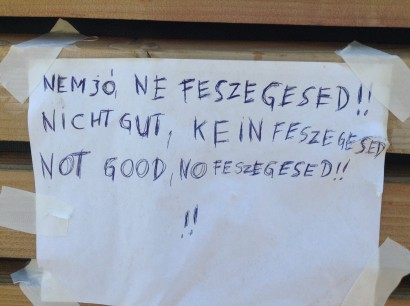 NEM JÓ, NE FESZEGESED!!
NICHT GUT, KEIN FESZEGESED
NOT GOOD, NO FESZEGESED!!
!!